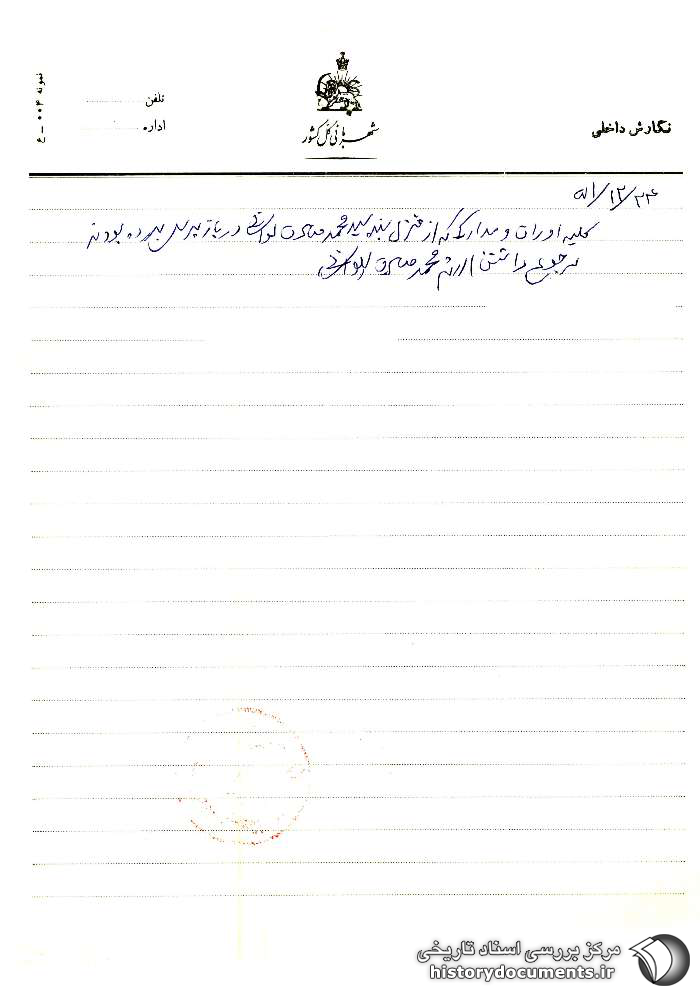 نمونه ۰۰۴ - ع
تلفن
اداره
شهربانی کل کشور
نگارش داخلی
۵۱/۱۲/۲۴
کلیه اوراق و مدارک که از منزل بنده سید محمد صادق لواسانی در بازپرسی برده بودند
مرجوع داشتن محمد صادق لواسانی
مرکز بررسی اسناد تاریخی
historydocuments.ir